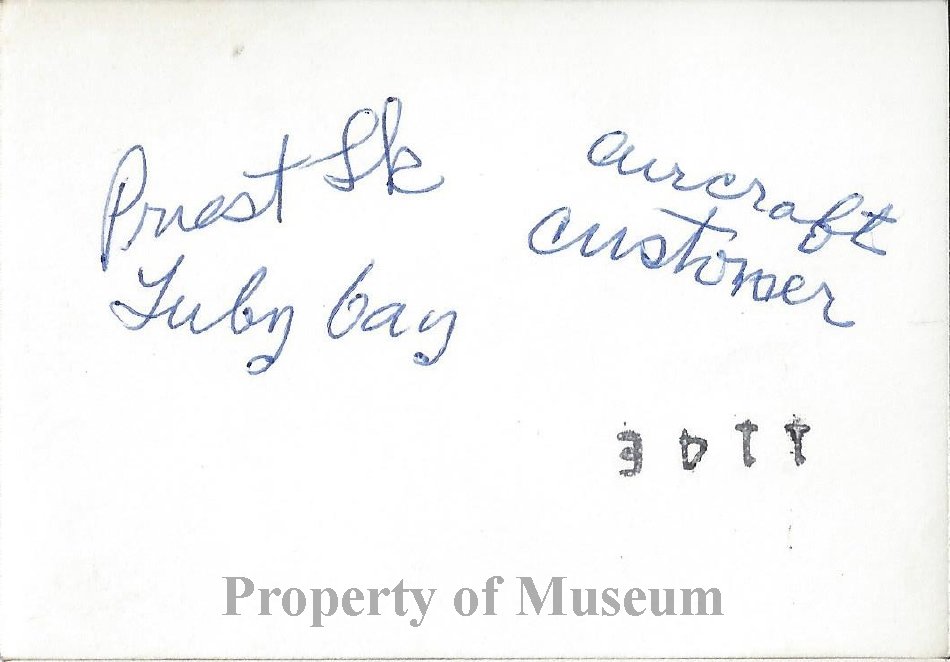 Priest Lk
Luby bay
aircraft
customer
Property of Museum